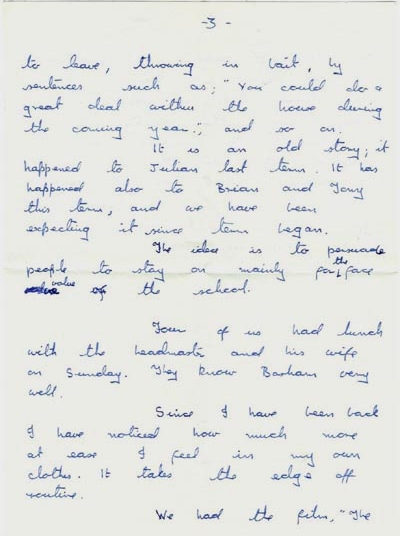 -3-
to leave, throwing in bait, by
sentences such as; "You could do a
great deal within the house during
the coming year.", and so on.
It is an old story; it
happened to Julian last term. It has
happened also to Brian and Tony
this term, and we have been
expecting it since term began.
The idea is to persuade
people to stay on mainly for the face
value of the school.
Four of us had lunch
with the headmaster and his wife
on Sunday. They know Barham very
well.
Since I have been back
I have noticed how much more
at ease I feel in my own
clothes. It takes the edge off
routine.
We had the film, "The